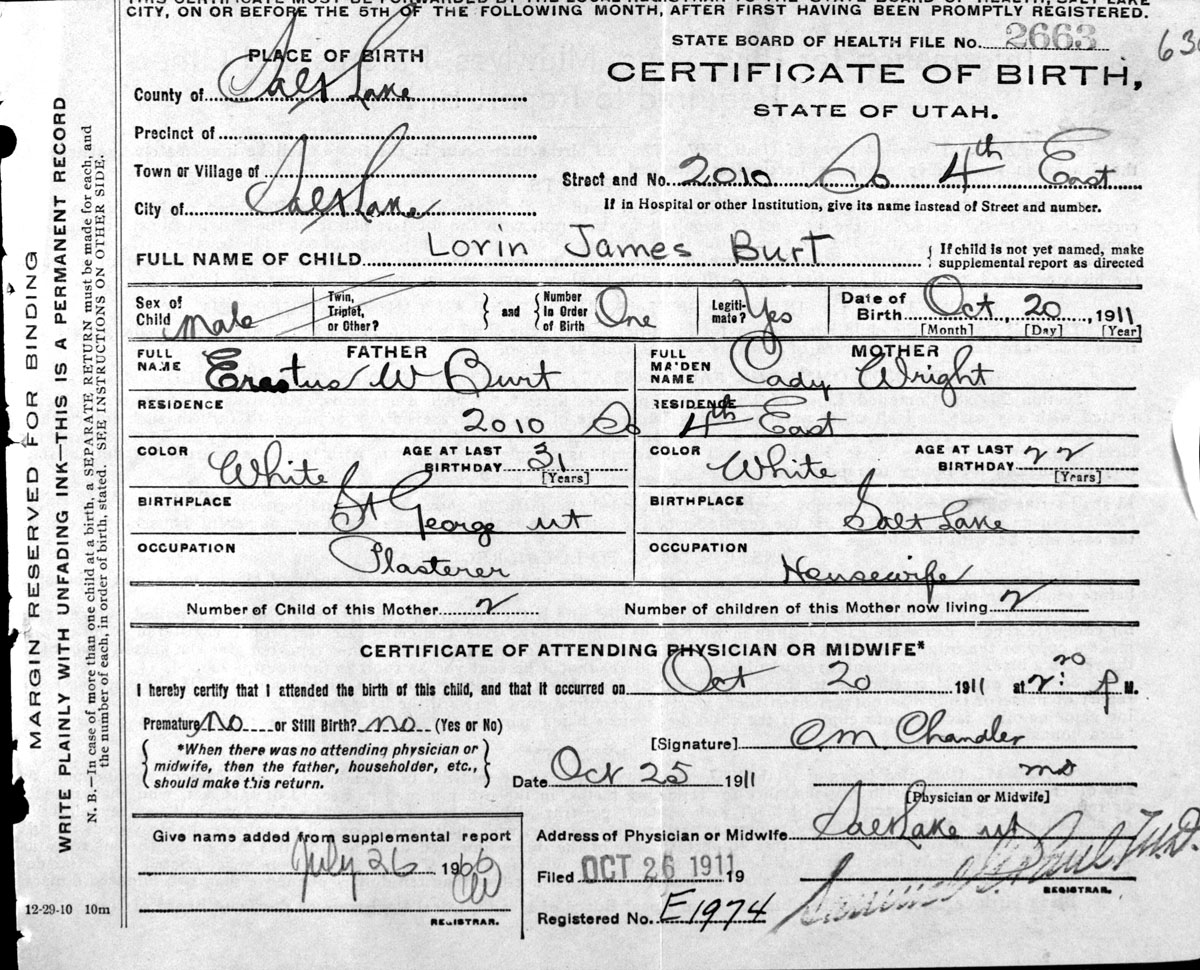 THIS CERTIFICATE MUST BE FORWARDED BY THE LOCAL REGISTRAR TO THE STATE BOARD OF HEALTH, SALT LAKE
CITY, ON OR BEFORE THE 5TH OF THE FOLLOWING MONTH, AFTER FIRST HAVING BEEN PROMPTLY REGISTERED.
STATE BOARD OF HEALTH FILE No. 2663
PLACE OF BIRTH
CERTIFICATE OF BIRTH,
County of Salt Lake
STATE OF UTAH.
Precinct of
Town or Village of
Street and No. 2010 So 4th East
City of Salt Lake
If in Hospital or other Institution, give its name instead of Street and number.
FULL NAME OF CHILD Lorin James Burt { If child is not yet named, make
supplemental report as directed
Sex of Child Male
Twin, Triplet, or Other? } and { Number in Order of Birth One
Legiti-mate? Yes
Date of Birth Oct 20, 1911
[Month] [Day] [Year]
FATHER
FULL NAME Erastus W Burt
MOTHER
FULL MAIDEN NAME Cady Wright
RESIDENCE 2010 So
RESIDENCE 4th East
COLOR White AGE AT LAST BIRTHDAY 31 [Years]
COLOR White AGE AT LAST BIRTHDAY 22 [Years]
BIRTHPLACE St George ut
BIRTHPLACE Salt Lake
OCCUPATION Plasterer
OCCUPATION Housewife
Number of Child of this Mother 2 Number of children of this Mother now living 2
CERTIFICATE OF ATTENDING PHYSICIAN OR MIDWIFE*
I hereby certify that I attended the birth of this child, and that it occurred on Oct 20 1911 at 2:20 P M.
Premature No or Still Birth? No (Yes or No)
{ *When there was no attending physician or
midwife, then the father, householder, etc.,
should make this return. }
[Signature] O.M. Chandler
Date Oct 25 1911
MD
[Physician or Midwife]
Give name added from supplemental report
July 26 1966
REGISTRAR.
Address of Physician or Midwife Salt Lake ut
Filed OCT 26 1911 19
REGISTRAR.
Registered No. E1974
12-29-10 10m
MARGIN RESERVED FOR BINDING
WRITE PLAINLY WITH UNFADING INK—THIS IS A PERMANENT RECORD
N. B.—In case of more than one child at a birth, a SEPARATE RETURN must be made for each, and
the number of each, in order of birth, stated. SEE INSTRUCTIONS ON OTHER SIDE.